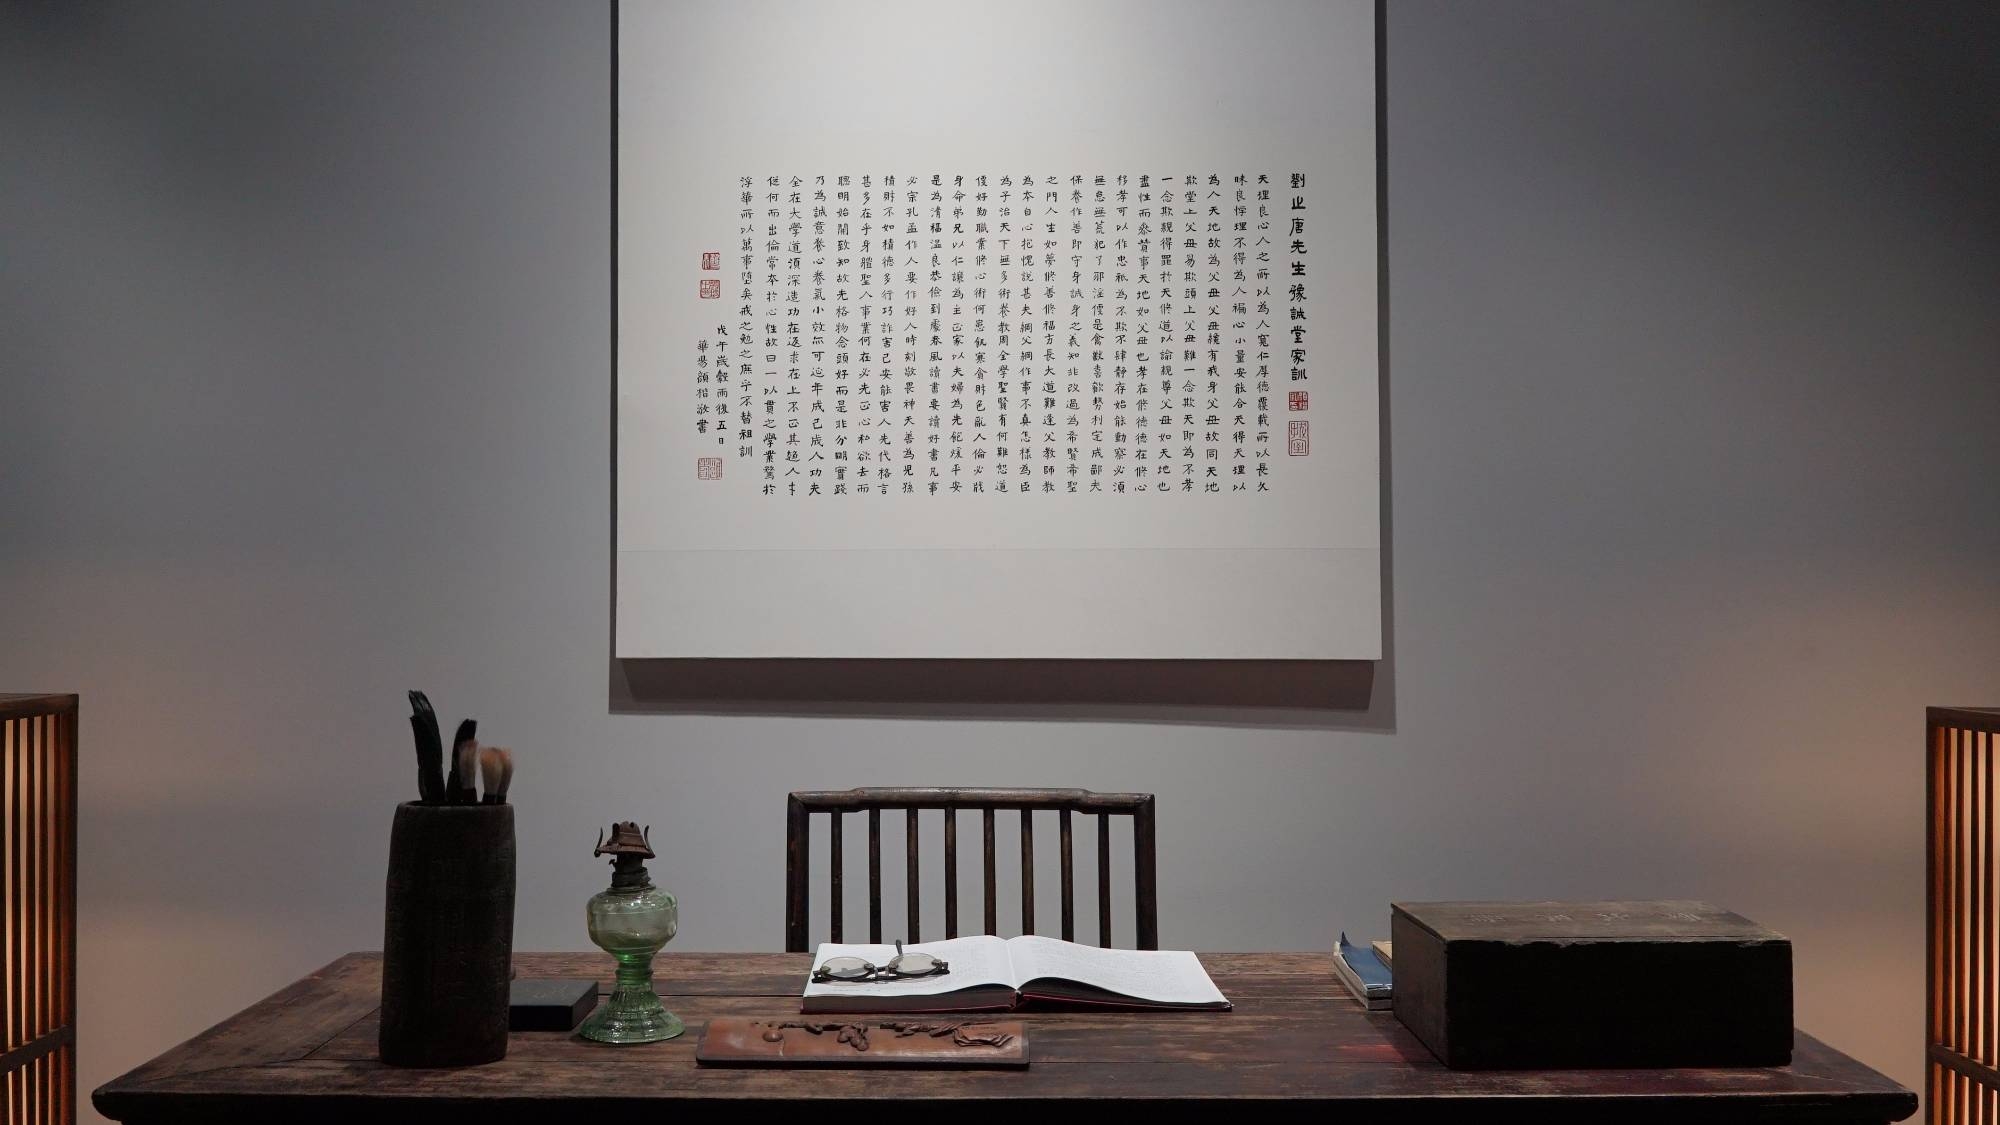 劉止唐先生豫誠堂家訓
天理良心人之所以為人寬仁厚德覆載所以長久
昧良悖理不得為人褊心小量安能合天得天理以
為人天地故為父母父母纔有我身父母故同天地
欺堂上父母易欺頭上父母難一念欺天即為不孝
一念欺親得罪於天修道以諭親尊父母如天地也
盡性而參贊事天地如父母也孝在修德德在修心
移孝可以作忠祇為不欺不肆靜存始能動察必須
無怠無荒犯了邪淫便是禽獸喜歡勢利定成鄙夫
保養作善即守身誠身之義知非改過為希賢希聖
之門人生如夢修善修福方長大道難逢父教師教
為本自心抱愧說甚夫綱父綱作事不真怎樣為臣
為子治天下無多術養教周全學聖賢有何難恕道
便好勤職業修心術何患飢寒貪財色亂人倫必戕
身命弟兄以仁讓為主正家以夫婦為先飽煖平安
是為清福溫良恭儉到處春風讀書要讀好書凡事
必宗孔孟作人要作好人時刻敬畏神天善為兒孫
積財不如積德多行巧詐害己安能害人先代格言
甚多在乎身體聖人事業何在必先正心私欲去而
聰明始開致知故先格物念頭好而是非分明實踐
乃為誠意養心養氣小效亦可延年成己成人功夫
全在大學道須深造功在返求在上不正其趨人才
從何而出倫常本於心性故曰一以貫之學業騖於
浮華所以萬事墮矣戒之勉之庶乎不替祖訓
戊午歲穀雨後五日
華陽顏楷敬書